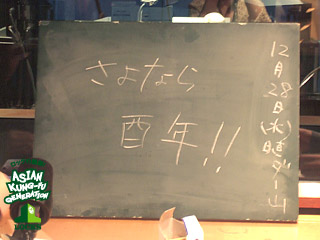 さよなら
酉年!!
12月28日(水)
ASIAN
KUNG-FU
GENERATION